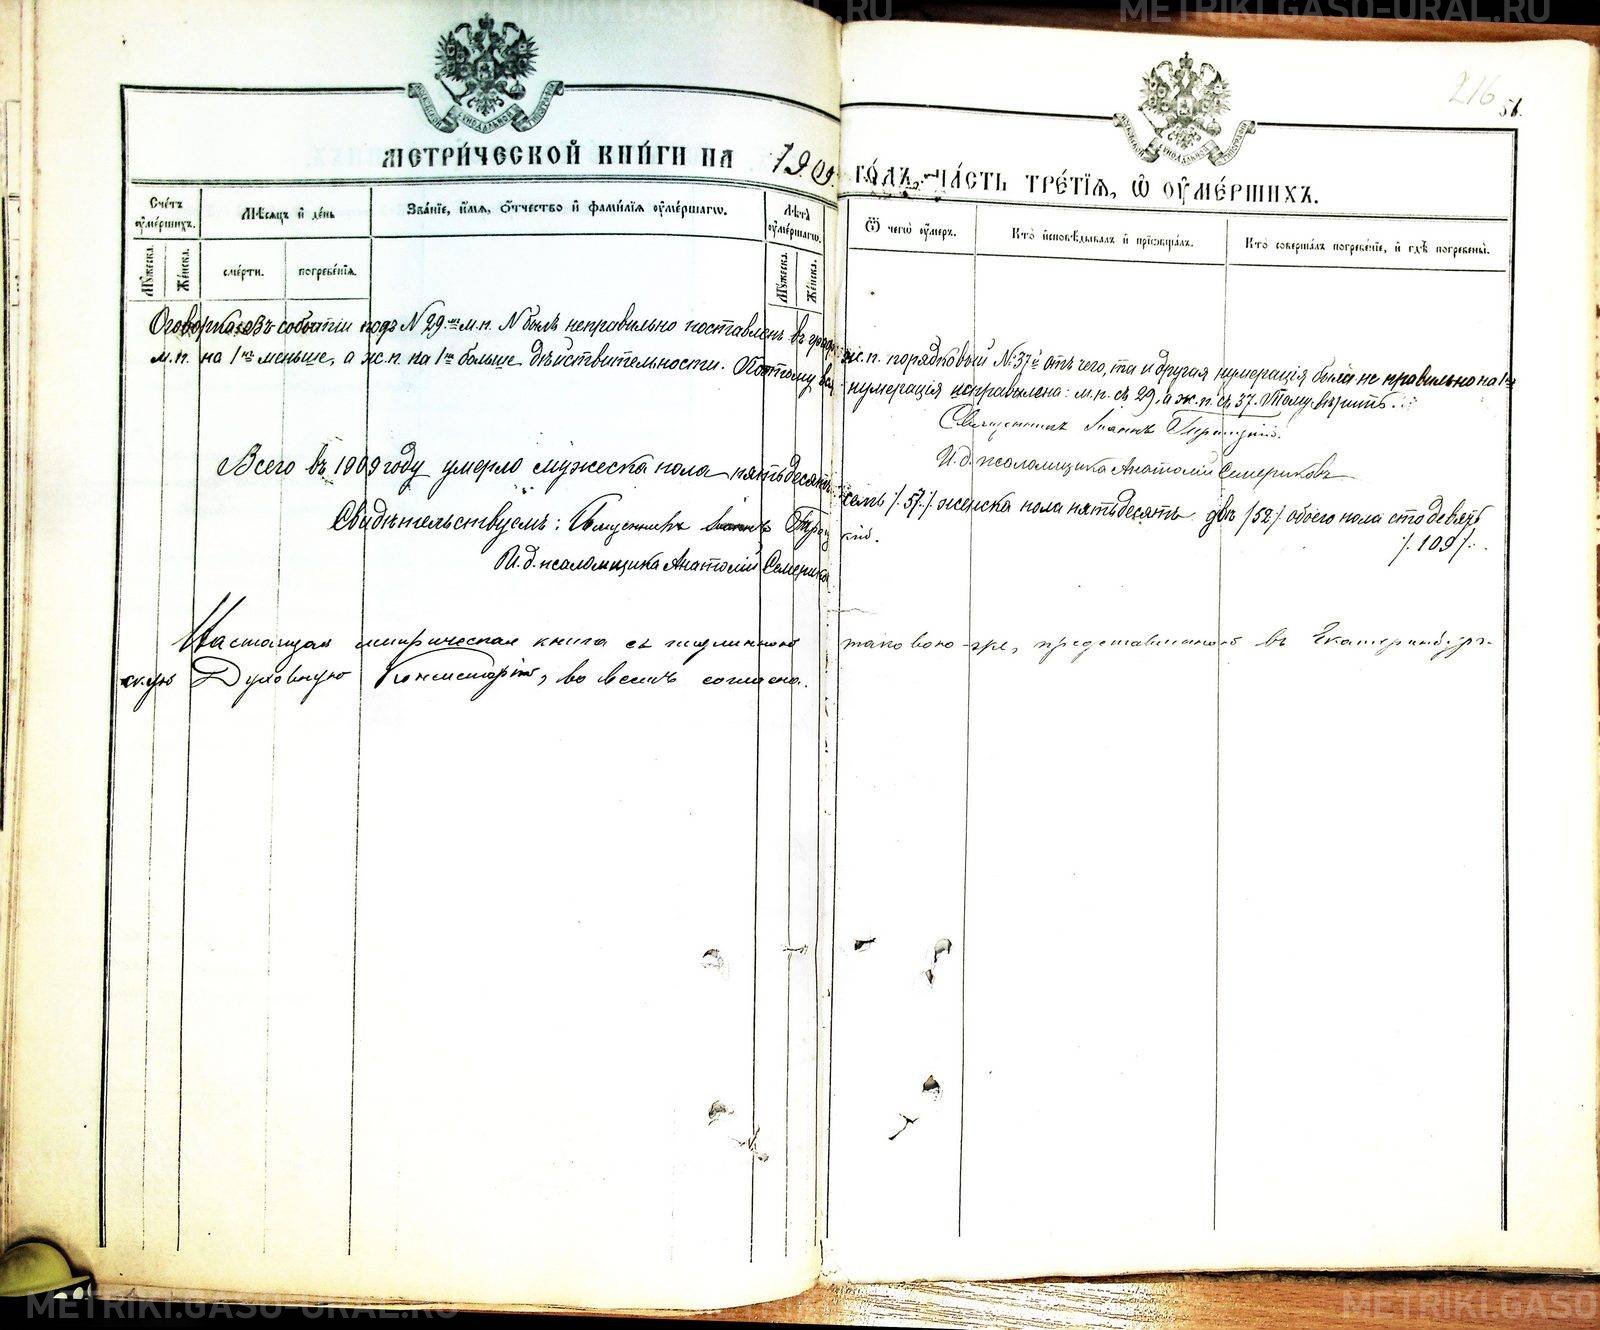 METRIKI.GASO-URAL.RU
METRIKI.GASO-URAL.RU
216
56.
МЕТРИ́ЧЕСКОЙ КНИ́ГИ НА 1909. ГО́ДЪ, ЧА́СТЬ ТРЕ́ТІѦ, Ѡ ОУМЕ́РШИХЪ.
Сче́тъ оумéршихъ.
Мѣ́сяцъ и де́нь
Зва́нїе, и́мѧ, ѻ́тчество и фами́лїѧ оумéршагѡ.
Лѣ́та оумéршагѡ.
Ѿ чегѡ̀ оу́меръ.
Кто̀ исповѣ́дывалъ и прїѡбща́лъ.
Кто̀ соверша́лъ погребе́нїе, и гдѣ̀ погребены̀.
Мꙋ́жеска.
Же́нска.
сме́рти.
погребе́нїѧ.
Мꙋ́жеска.
Же́нска.
Оговорка: Въ событіи подъ N 29 м.п. N былъ неправильно поставленъ въ графѣ ж.п. порядковый №37й отъ чего, та и другая нумерація была не правильно на 1
м.п. на 1 меньше, а ж.п. на 1 больше дѣйствительности. Поэтому вся нумерація исправлена: м.п. съ 29, а ж.п. съ 37. Тому вѣрить.
Священникъ Іоаннъ Троицкій.
И.д. псаломщика Анатолій Семериковъ
Всего въ 1909 году умерло мужеска пола пятьдесятъ семь /57/ женска пола пятьдесятъ двѣ /52/ обоего пола сто девять
/109/.
Свидѣтельствуемъ: Священникъ Іоаннъ Троицкій.
И.д. псаломщика Анатолій Семериковъ
Настоящая метрическая книга съ подлинною таковою-же, представленною въ Екатеринбург-
скую Духовную Консисторію, во всемъ согласна.
METRIKI.GASO-URAL.RU
METRIKI.GASO